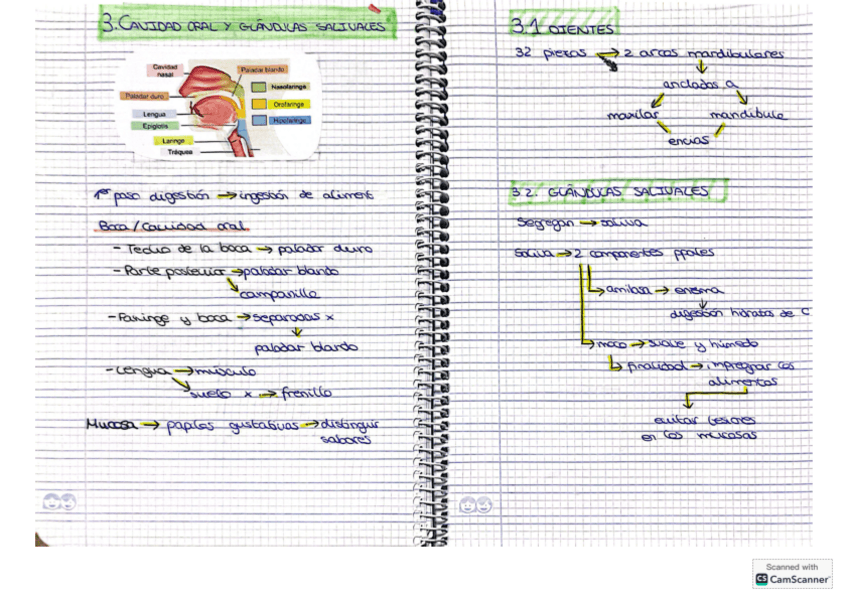 3. CAVIDAD ORAL Y GLÁNDULAS SALIVALES
Cavidad nasal
Paladar blando
Paladar duro
Nasofaringe
Orofaringe
Lengua
Hipofaringe
Epiglotis
Laringe
Tráquea
1er paso digestión → ingestión de aliment
Boca / Cavidad oral
- Techo de la boca → paladar duro
- Parte posterior → paladar blando
campanilla
- Faringe y boca → separadas x
paladar blando
- Lengua → músculo
suelo x → frenillo
Mucosa → papilas gustativas → distinguir
sabores
3.1 DIENTES
32 piezas → 2 arcos mandibulares
anclados a
maxilar mandíbula
encías
3.2. GLÁNDULAS SALIVALES
Segregan → saliva
Saliva → 2 componentes pples
→ amilasa → enzima
digestión hidratos de C
→ moco → suave y húmedo
→ finalidad → impregnar los
alimentos
evitar lesiones
en las mucosas
Scanned with
CS CamScanner